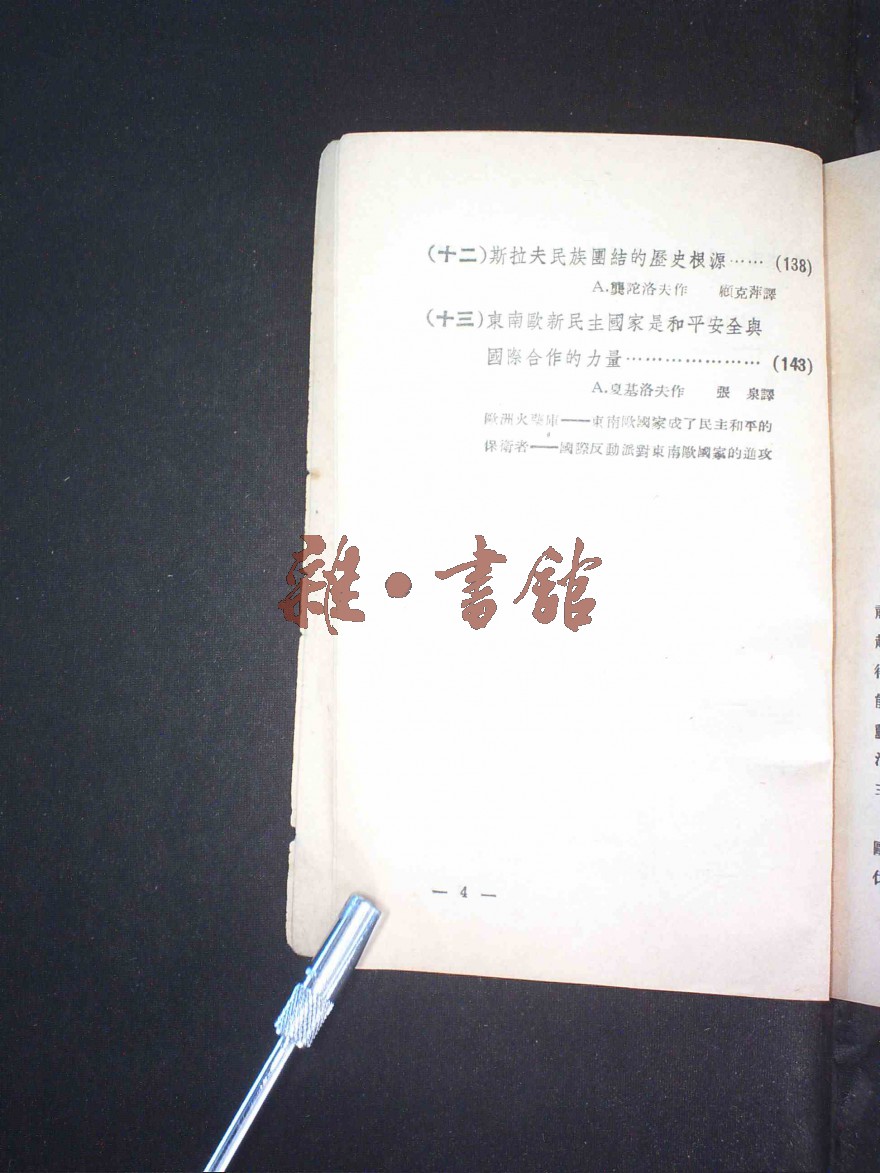 (十二)斯拉夫民族團結的歷史根源…… (138)
A.龔詑洛夫作 顧克萍譯
(十三)東南歐新民主國家是和平安全與
國際合作的力量………………… (143)
A.夏基洛夫作 張 泉譯
歐洲火藥庫——東南歐國家成了民主和平的
保衛者——國際反動派對東南歐國家的進攻
雜·書館
— 4 —